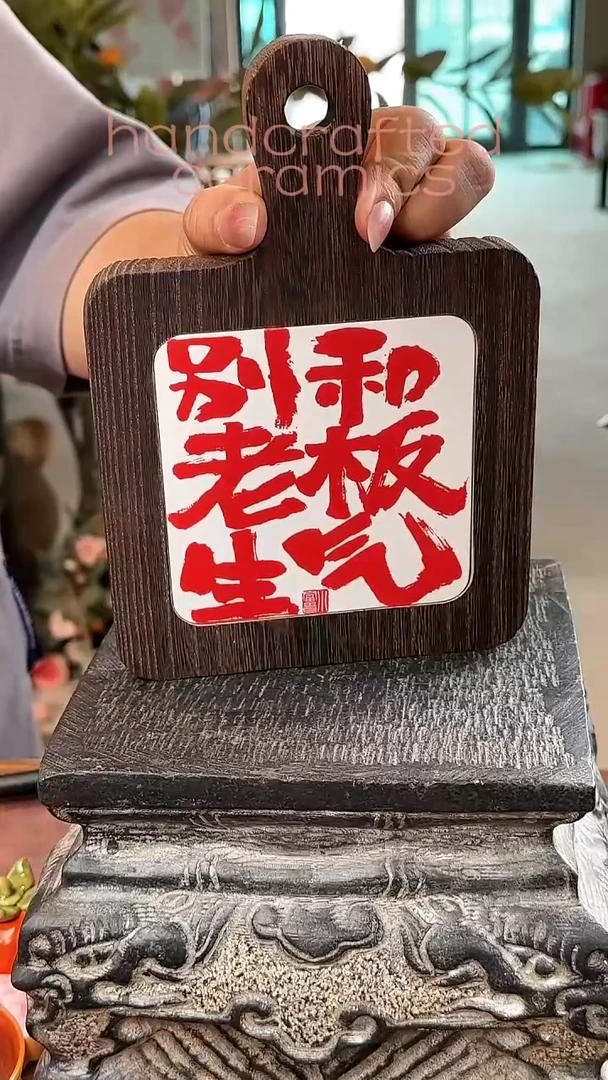 handcrafted
ceramics
别和
老板
生气